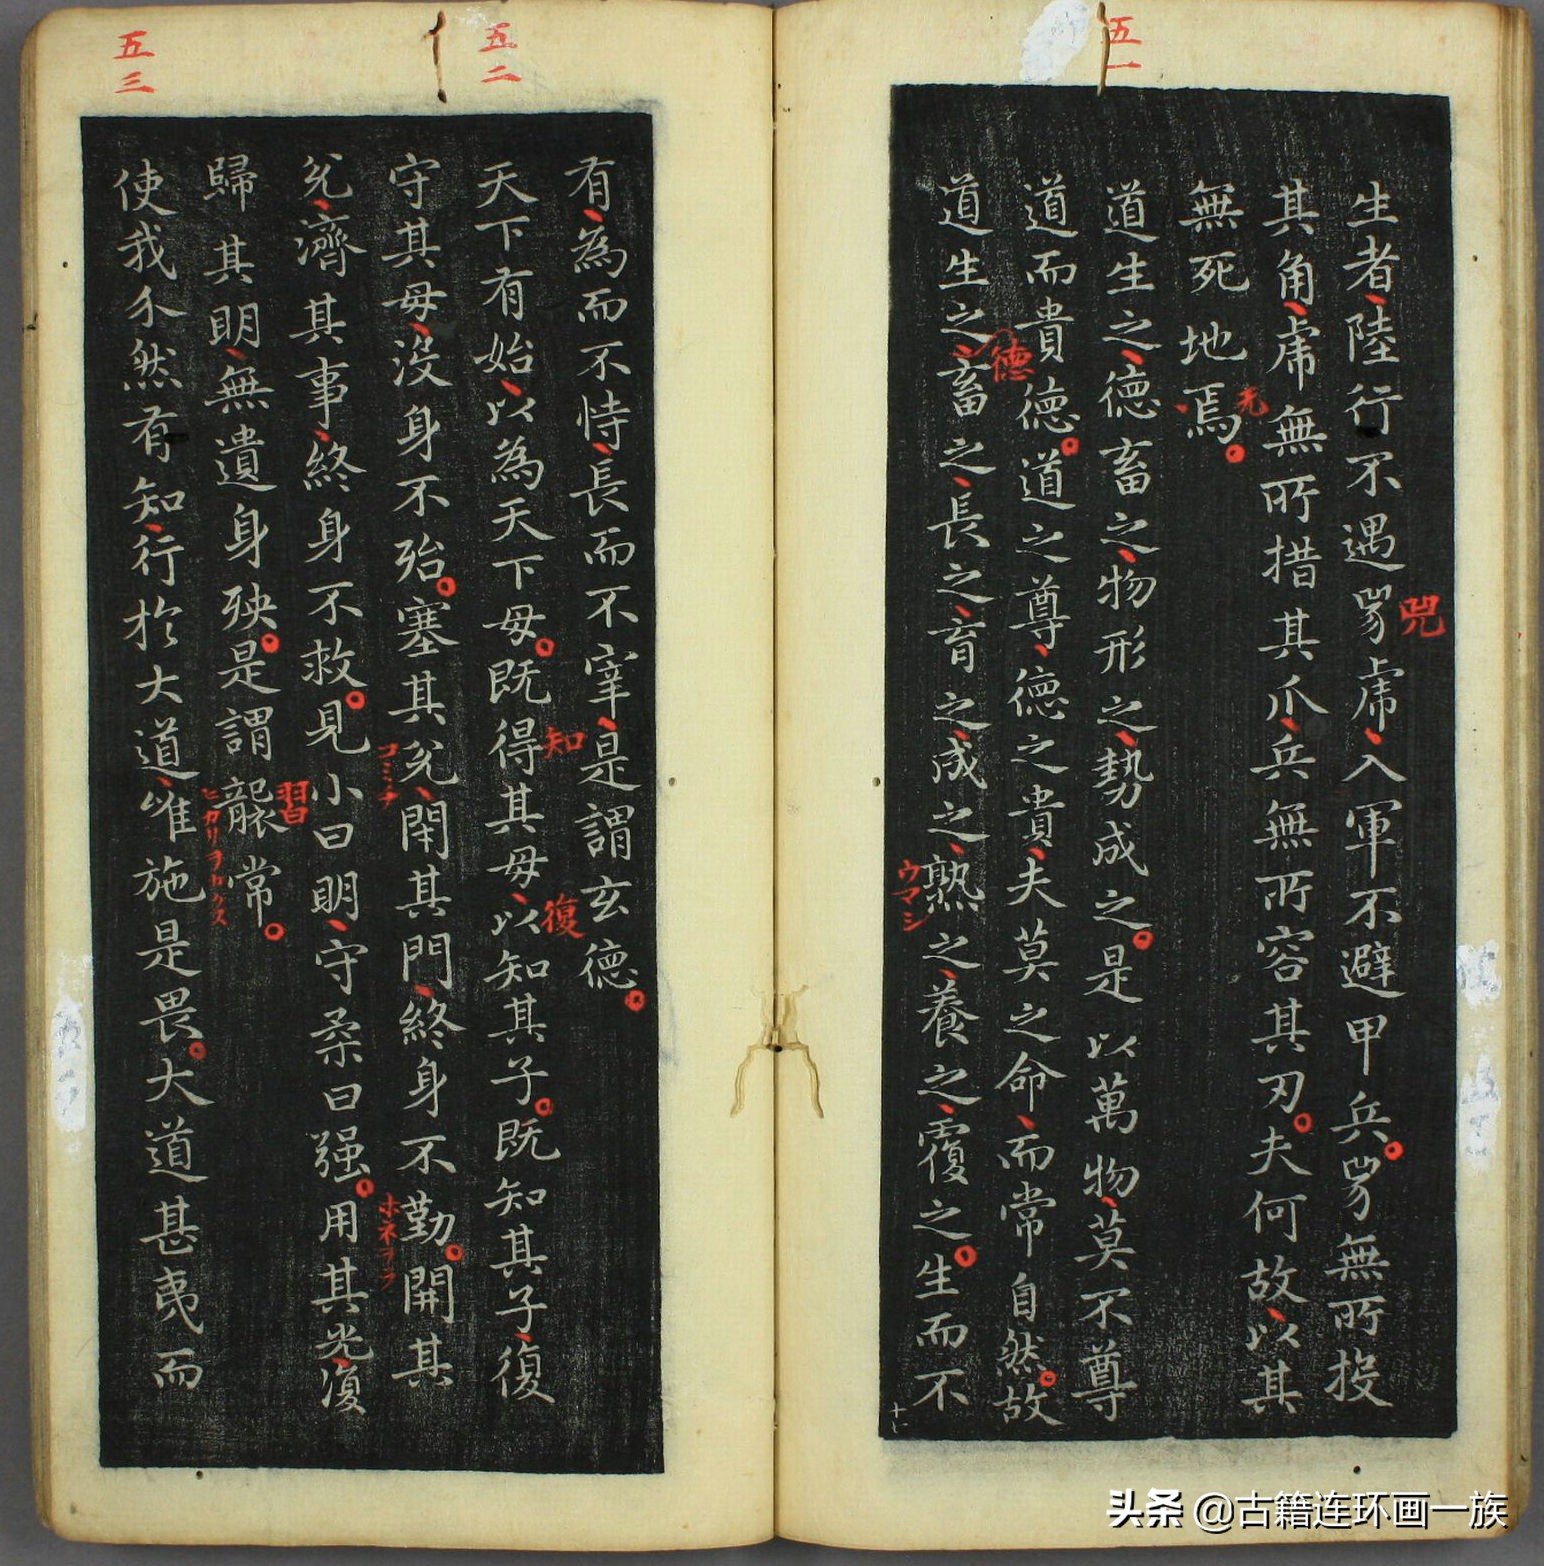 五一
生者陸行不遇兕虎入軍不避甲兵兕無所投
兕
其角虎無所措其爪兵無所容其刃夫何故以其
無死地焉
道生之德畜之物形之勢成之是以萬物莫不尊
道而貴德道之尊德之貴夫莫之命而常自然故
德
道生之畜之長之育之成之熟之養之覆之生而不
ウマシ
五二
有為而不恃長而不宰是謂玄德
天下有始以為天下母既得其母以知其子既知其子復
知
復
守其母沒身不殆塞其兌閉其門終身不勤開其
コミチ
ホネヲラ
兌濟其事終身不救見小曰明守柔曰强用其光復
歸其明無遺身殃是謂襲常
習
五三
使我介然有知行於大道唯施是畏大道甚夷而
头条 @古籍连环画一族